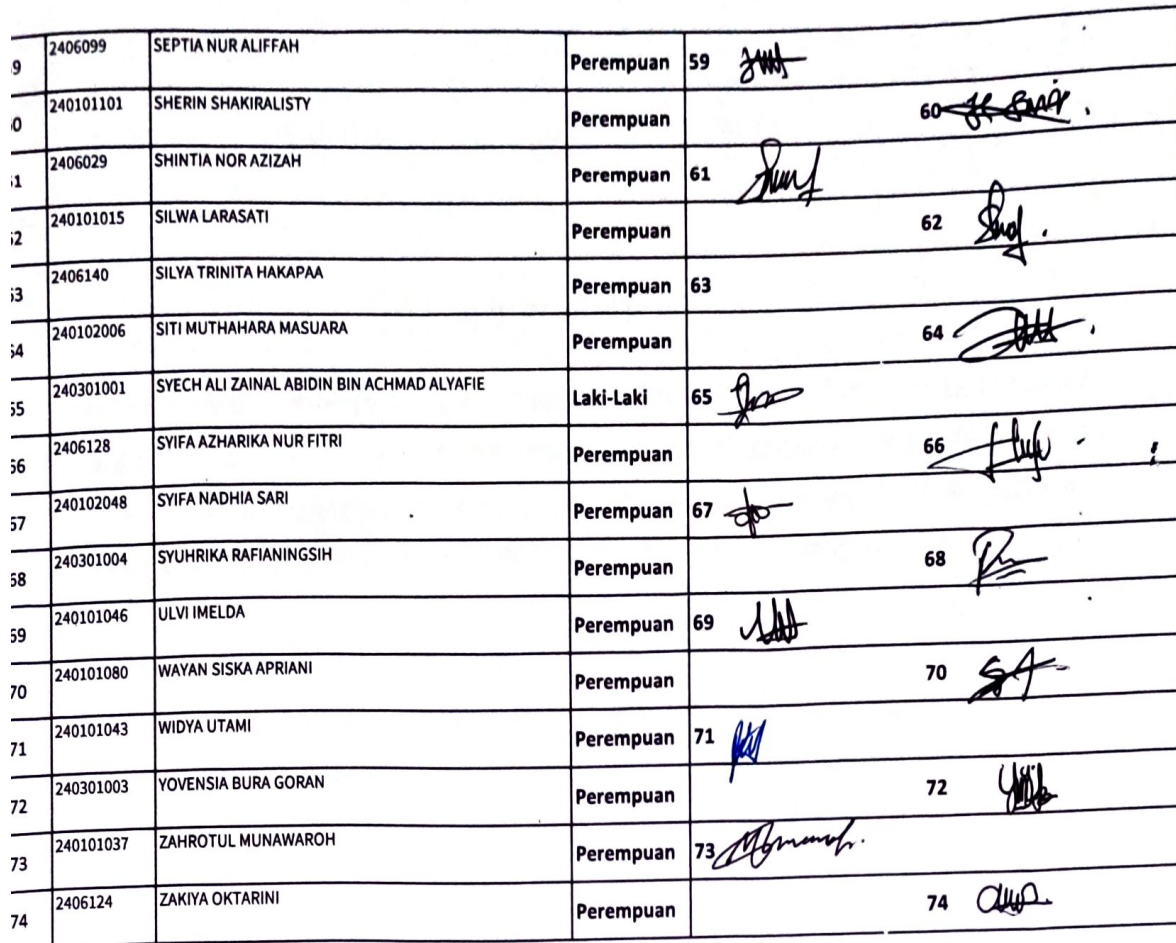 9 2406099 SEPTIA NUR ALIFFAH Perempuan 59
0 240101101 SHERIN SHAKIRALISTY Perempuan 60
1 2406029 SHINTIA NOR AZIZAH Perempuan 61
2 240101015 SILWA LARASATI Perempuan 62
3 2406140 SILYA TRINITA HAKAPAA Perempuan 63
4 240102006 SITI MUTHAHARA MASUARA Perempuan 64
55 240301001 SYECH ALI ZAINAL ABIDIN BIN ACHMAD ALYAFIE Laki-Laki 65
66 2406128 SYIFA AZHARIKA NUR FITRI Perempuan 66
67 240102048 SYIFA NADHIA SARI Perempuan 67
68 240301004 SYUHRIKA RAFIANINGSIH Perempuan 68
69 240101046 ULVI IMELDA Perempuan 69
70 240101080 WAYAN SISKA APRIANI Perempuan 70
71 240101043 WIDYA UTAMI Perempuan 71
72 240301003 YOVENSIA BURA GORAN Perempuan 72
73 240101037 ZAHROTUL MUNAWAROH Perempuan 73
74 2406124 ZAKIYA OKTARINI Perempuan 74